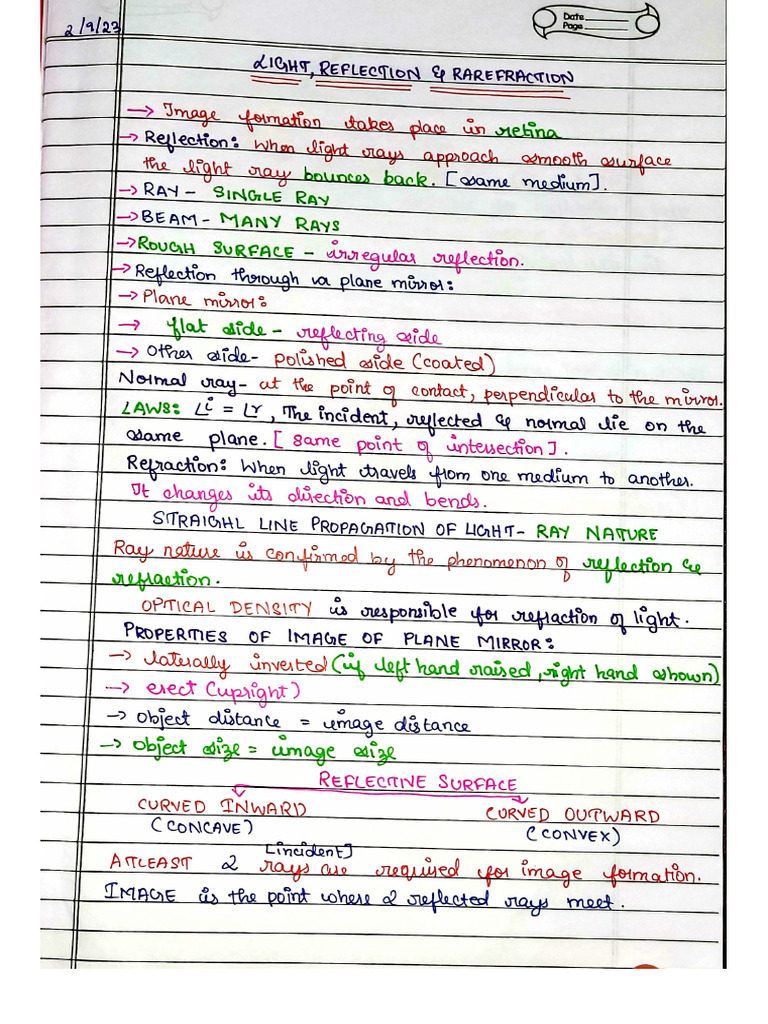 2/9/23
Date
Page
LIGHT, REFLECTION & RAREFRACTION
→ Image formation takes place in retina
→ Reflection: When light rays approach smooth surface
the light ray bounces back. [same medium].
→ RAY - SINGLE RAY
→ BEAM - MANY RAYS
→ ROUGH SURFACE - irregular reflection.
→ Reflection through a plane mirror:
→ Plane mirror:
→ flat side - reflecting side
→ Other side - polished side (coated)
Normal ray - at the point of contact, perpendicular to the mirror.
LAWS: ∠i = ∠r, The incident, reflected & normal lie on the
same plane. [same point of intersection].
Refraction: When light travels from one medium to another.
It changes its direction and bends.
STRAIGHL LINE PROPAGATION OF LIGHT - RAY NATURE
Ray nature is confirmed by the phenomenon of reflection &
refraction.
OPTICAL DENSITY is responsible for refraction of light.
PROPERTIES OF IMAGE OF PLANE MIRROR:
→ laterally inverted (if left hand raised, right hand shown)
→ erect (upright)
→ Object distance = image distance
→ Object size = image size
REFLECTIVE SURFACE
CURVED INWARD CURVED OUTWARD
(CONCAVE) (CONVEX)
[incident]
ATLEAST 2 rays are required for image formation.
IMAGE is the point where 2 reflected rays meet.